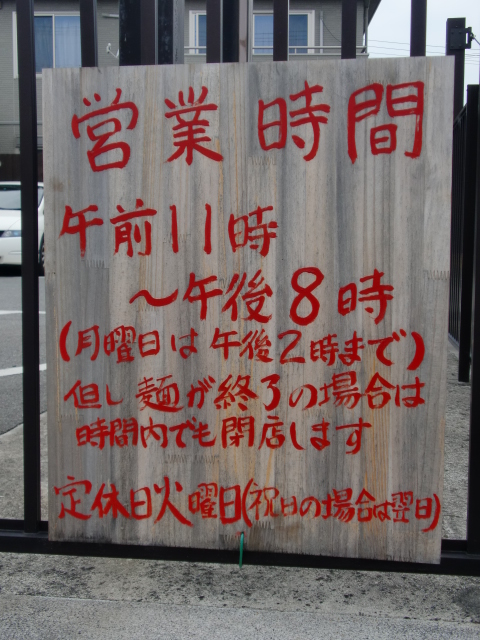 営業時間
午前11時
〜午後8時
(月曜日は午後2時まで)
但し麺が終了の場合は
時間内でも閉店します
定休日火曜日(祝日の場合は翌日)